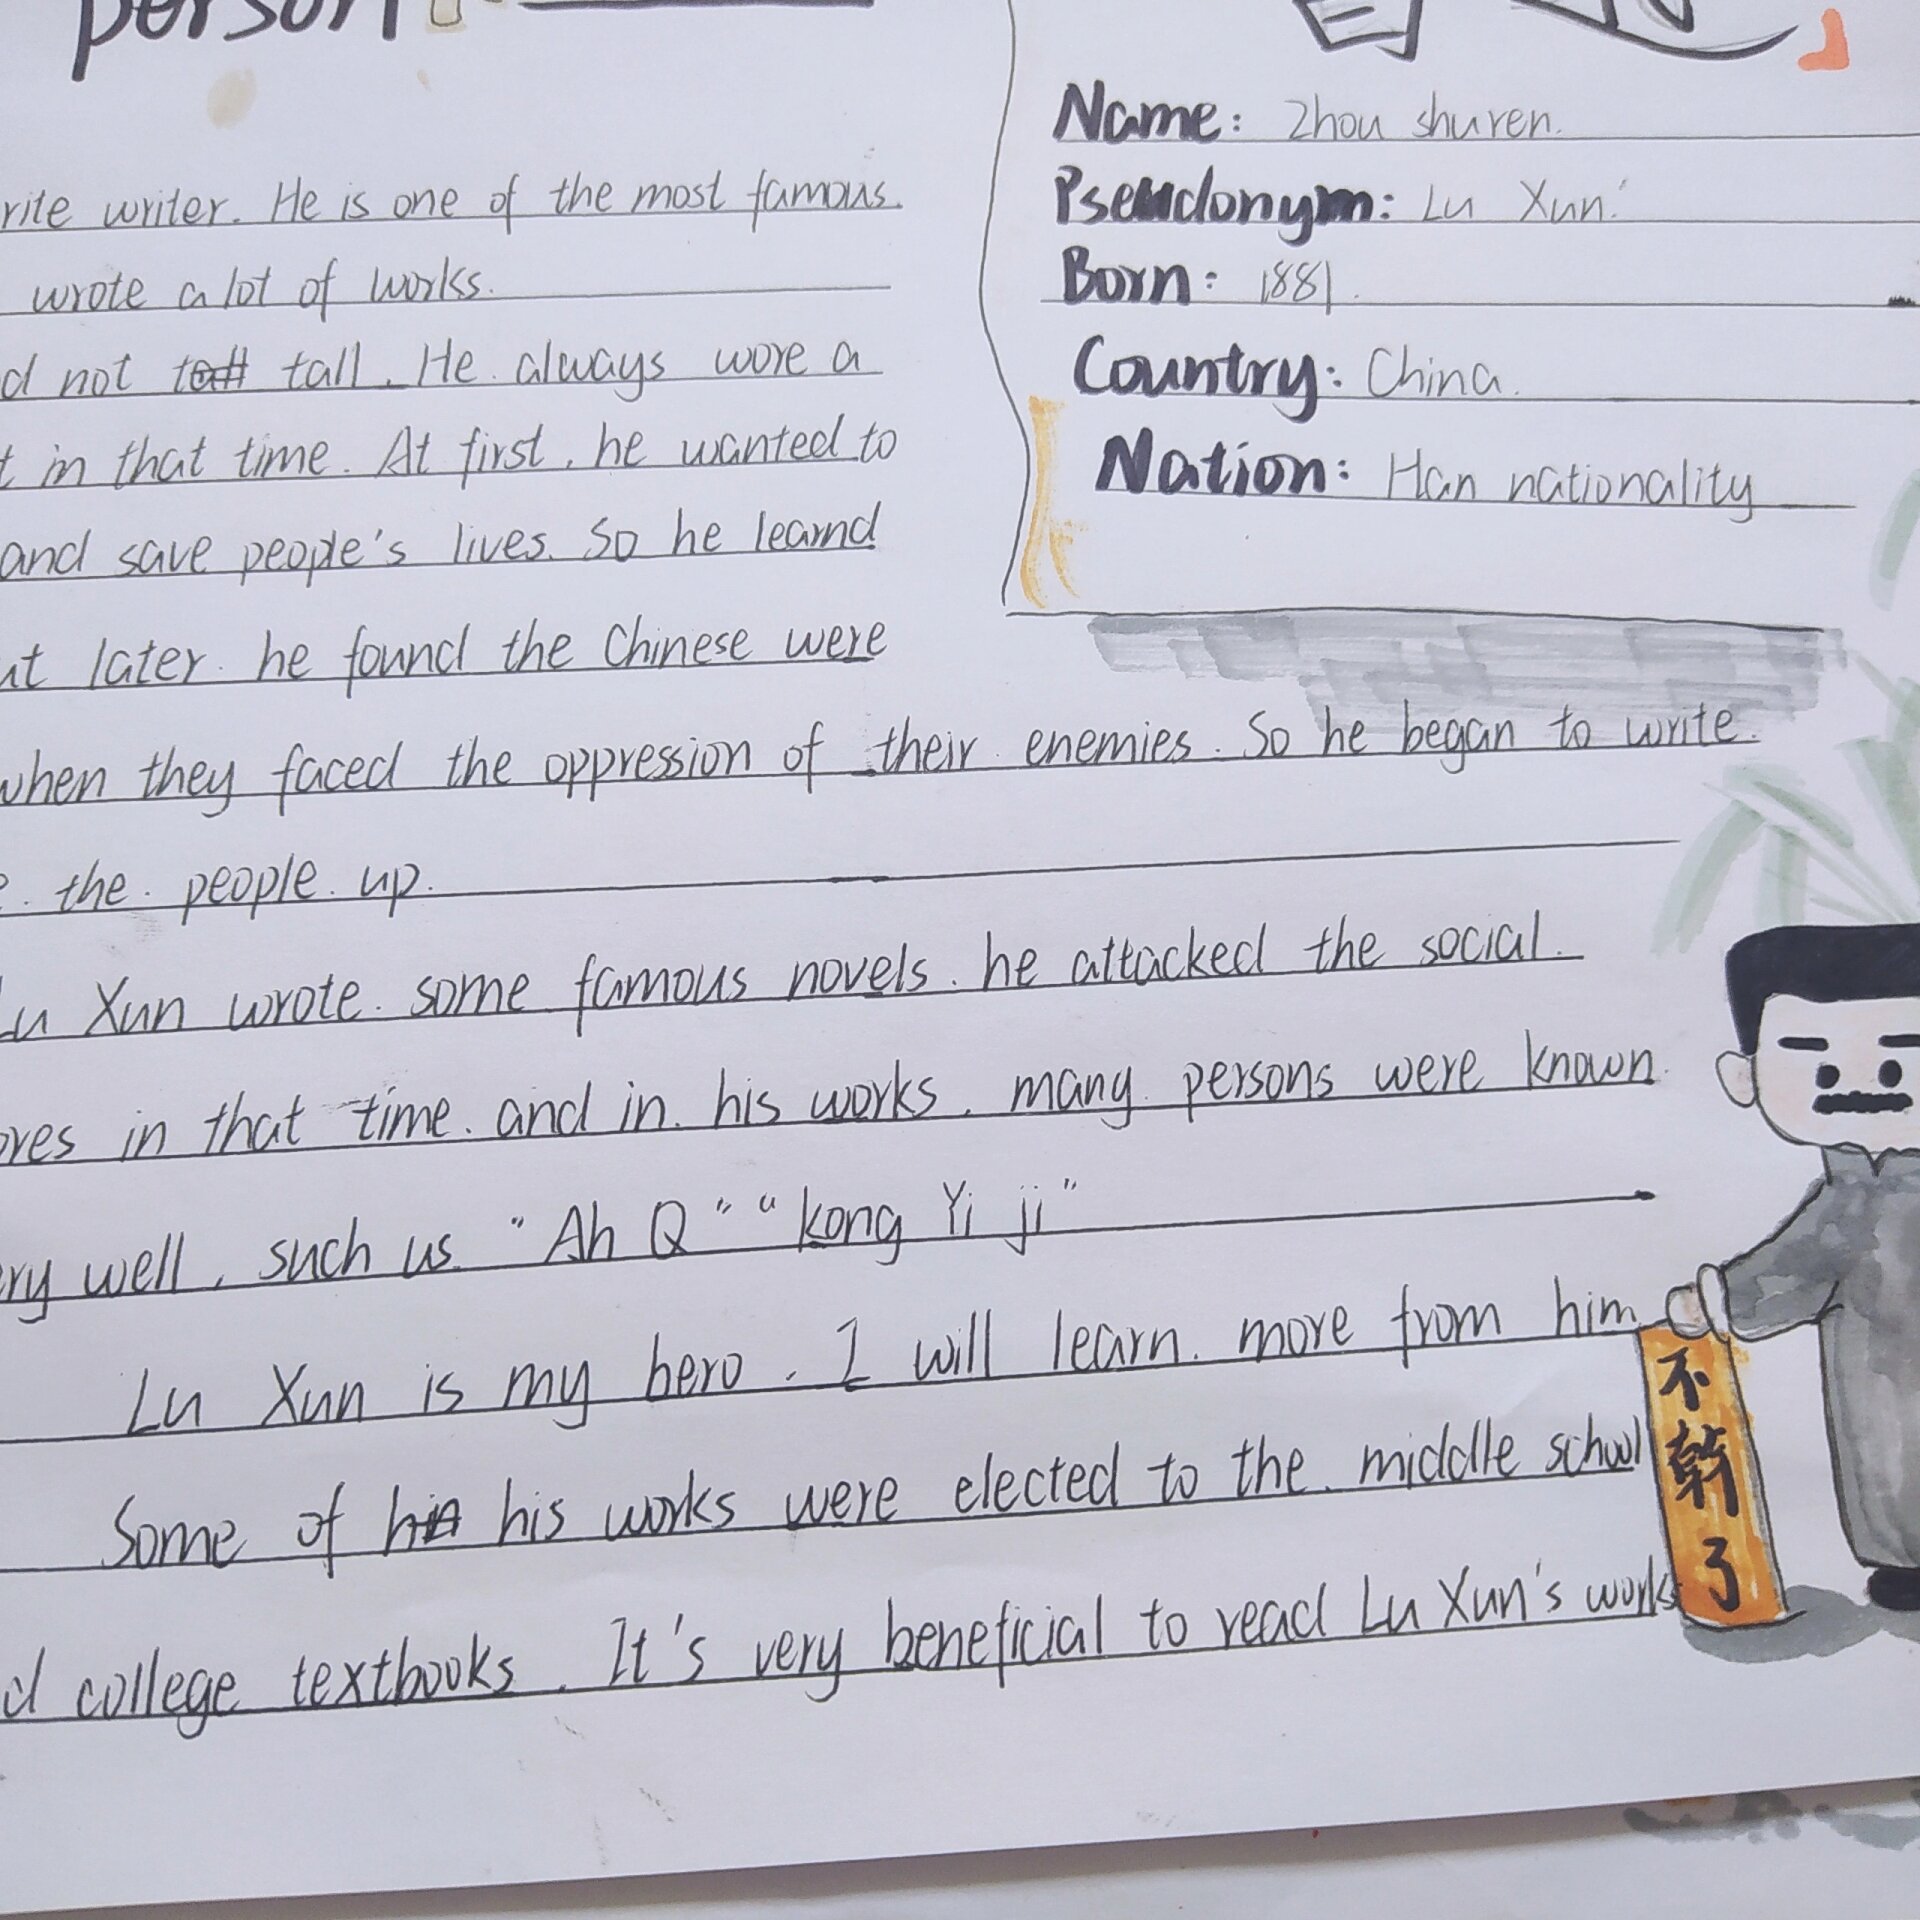 person
rite writer. He is one of the most famous.
wrote a lot of works.
d not tall. He always wore a
t in that time. At first, he wanted to
and save people's lives. So he learnd
ut later he found the Chinese were
when they faced the oppression of their enemies. So he began to write.
the people up.
Lu Xun wrote some famous novels. he attacked the social.
ores in that time. and in his works, many persons were known.
ery well, such us "Ah Q" "kong Yi ji"
Lu Xun is my hero. I will learn more from him.
Some of his works were elected to the middle school
d college textbooks. It's very beneficial to read Lu Xun's works
Name: Zhou shuren.
Pseudonym: Lu Xun.
Born: 1881.
Country: China.
Nation: Han nationality
不
幹
了